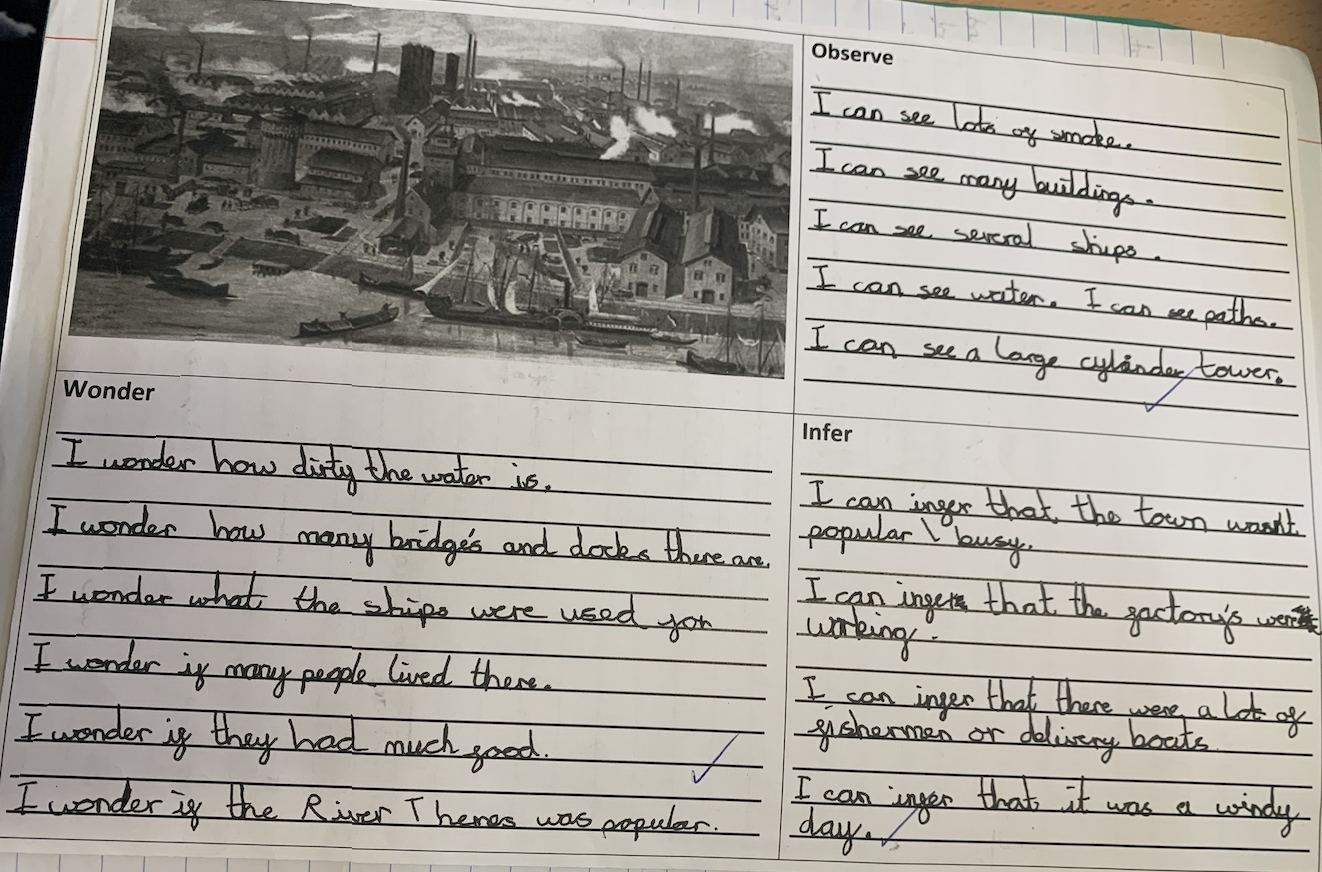 Observe
I can see lots of smoke.
I can see many buildings.
I can see several ships.
I can see water. I can see paths.
I can see a large cylinder tower.
Wonder
I wonder how dirty the water is.
I wonder how many bridge's and docks there are.
I wonder what the ships were used for
I wonder if many people lived there.
I wonder if they had much food.
I wonder if the River Themes was popular.
Infer
I can infer that the town wasn't
popular \ busy.
I can infer that the factory's were
working.
I can infer that there were a lot of
fishermen or delivery boats
I can infer that it was a windy
day.